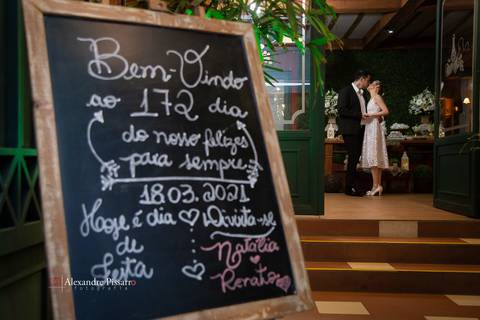 Bem-Vindo
ao 172 dia
do nosso felizes
para sempre
18.03.2021
Hoje é dia Divirta-se
de Natália
Festa Renato
Alexandre Pissarro
fotografia